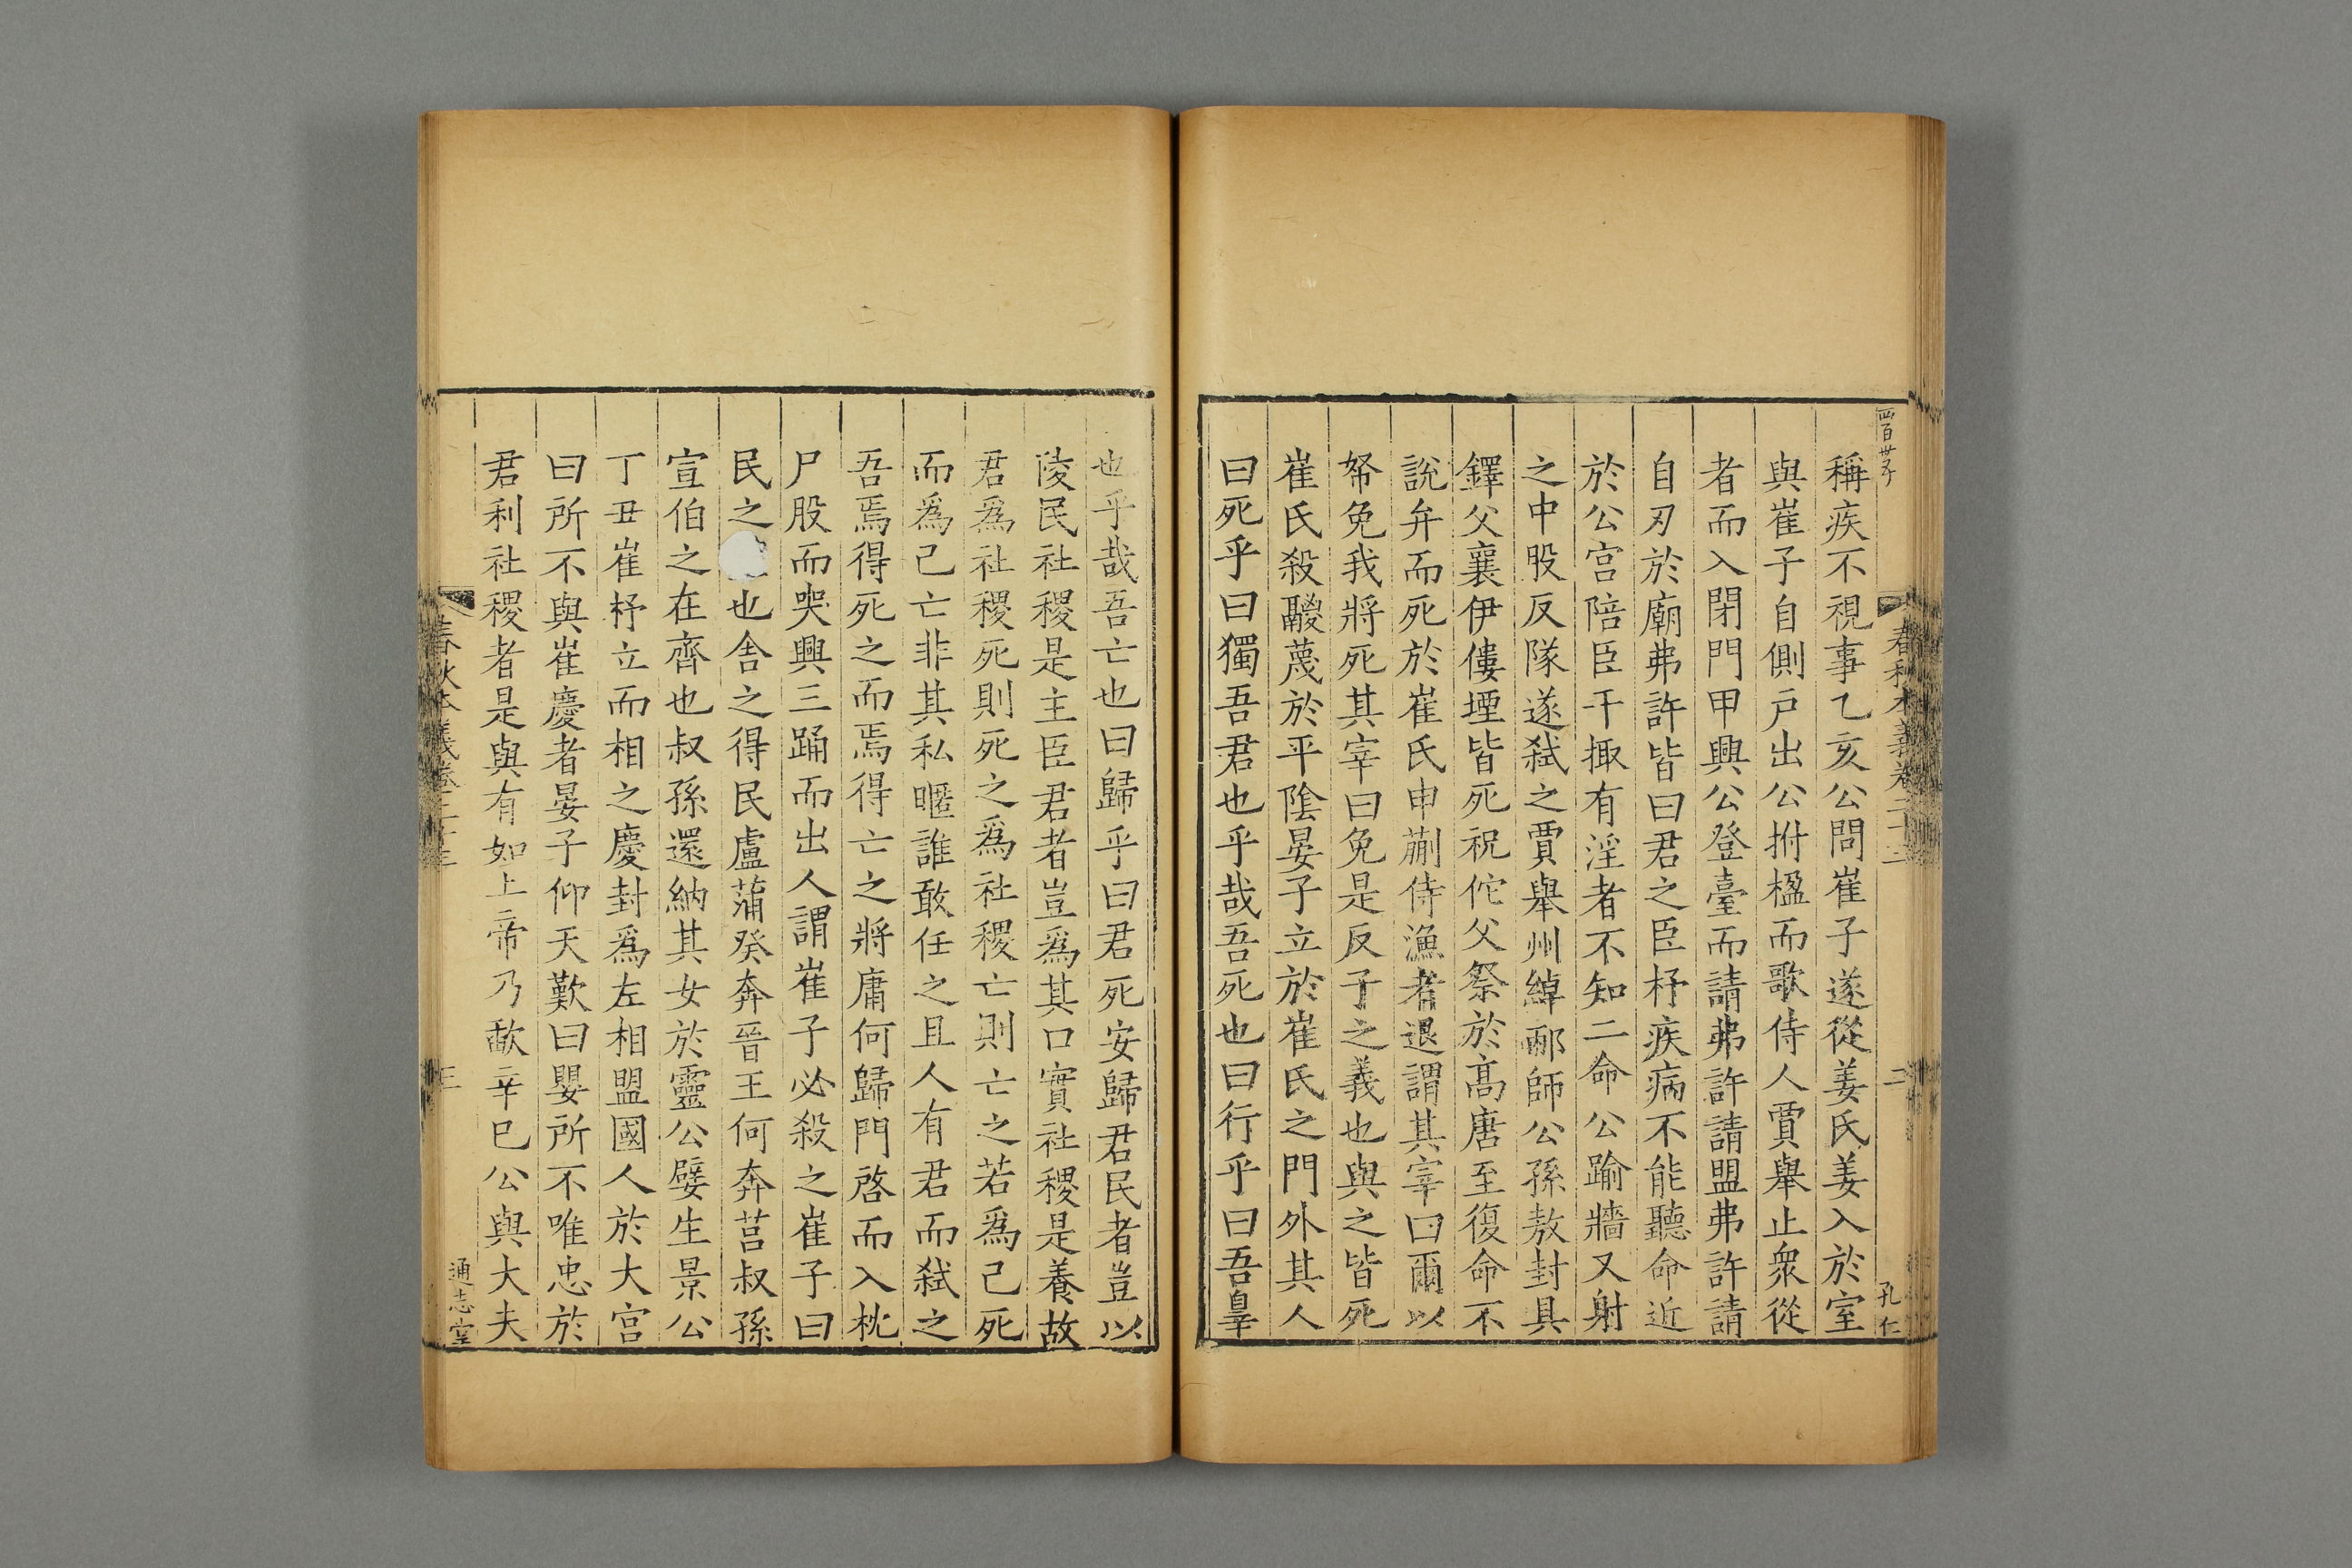 稱疾不視事乙亥公問崔子遂從姜氏姜入於室
與崔子自側戶出公拊楹而歌侍人賈舉止衆從
者而入閉門甲興公登臺而請弗許請盟弗許請
自刃於廟弗許皆曰君之臣杼疾病不能聽命近
於公宮陪臣干掫有淫者不知二命公踰牆又射
之中股反隊遂弒之賈舉州綽邴師公孫敖封具
鐸父襄伊僂堙皆死祝佗父祭於高唐至復命不
說弁而死於崔氏申蒯侍漁者退謂其宰曰爾以
帑免我將死其宰曰免是反子之義也與之皆死
崔氏殺鬷蔑於平陰晏子立於崔氏之門外其人
曰死乎曰獨吾君也乎哉吾死也曰行乎曰吾辠
也乎哉吾亡也曰歸乎曰君死安歸君民者豈以
陵民社稷是主臣君者豈爲其口實社稷是養故
君爲社稷死則死之爲社稷亡則亡之若爲己死
而爲己亡非其私暱誰敢任之且人有君而弒之
吾焉得死之而焉得亡之將庸何歸門啓而入枕
尸股而哭興三踊而出人謂崔子必殺之崔子曰
民之也舍之得民盧蒲癸奔晉王何奔莒叔孫
宣伯之在齊也叔孫還納其女於靈公嬖生景公
丁丑崔杼立而相之慶封爲左相盟國人於大宮
曰所不與崔慶者晏子仰天歎曰嬰所不唯忠於
君利社稷者是與有如上帝乃歃辛巳公與大夫
春秋本義卷二十三
二
孔仁
春秋本義卷二十三
三
通志堂